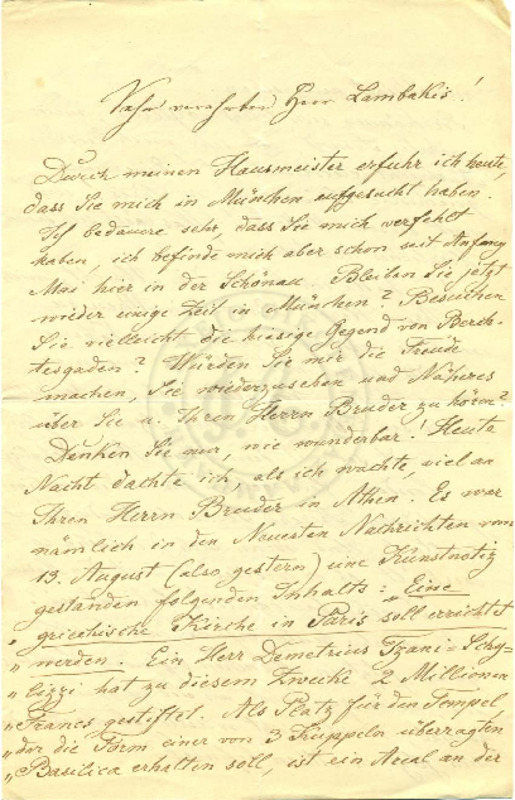 Sehr verehrter Herr Lambakis!
Durch meinen Hausmeister erfuhr ich heute,
dass Sie mich in München aufgesucht haben.
Ich bedauere sehr, dass Sie mich verfehlt
haben, ich befinde mich aber schon seit Anfang
Mai hier in der Schönau. Bleiben Sie jetzt
wieder einige Zeit in München? Besuchen
Sie vielleicht die hiesige Gegend von Berch-
tesgaden? Würden Sie mir die Freude
machen, Sie wiederzusehen und Näheres
über Sie u. Ihren Herrn Bruder zu hören?
Denken Sie nur, wie wunderbar! Heute
Nacht dachte ich, als ich wachte, viel an
Ihren Herrn Bruder in Athen. Es war
nämlich in den Neuesten Nachrichten vom
13. August (also gestern) eine Kunstnotiz
gestanden folgenden Inhalts: „Eine
„griechische Kirche in Paris soll errichtet
„werden. Ein Herr Demetrius Tzani=Schy=
„lizzi hat zu diesem Zwecke 2 Millionen
„Francs gestiftet. Als Platz für den Tempel
„der die Form einer von 3 Kuppeln überragten
„Basilica erhalten soll, ist ein Areal an der